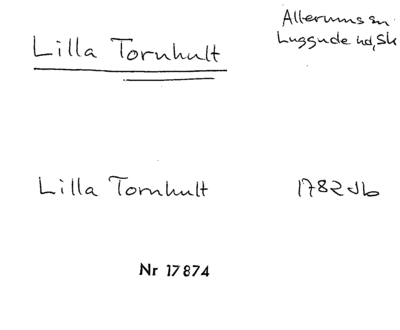 Lilla Tornhult
Allerums sn
Luggude hd, Sk
Lilla Tornhult
1782 Jb
Nr 17874